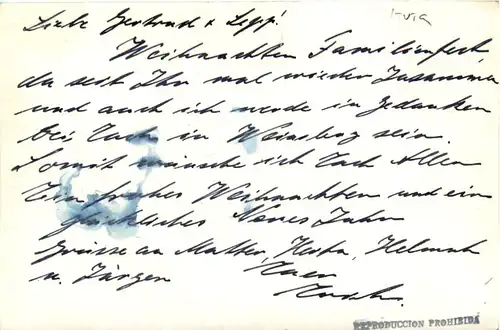 I-VIA
Liebe Gertrud + Sepp!
Weihnachten Familienfest,
da seid Ihr mal wieder Zusammen
und auch ich werde in Gedanken
bei Euch in Weinsberg sein.
Somit wünsche ich Euch Allen
Ein frohes Weihnachten und ein
glückliches Neues Jahr
Grüsse an Mutter, Herta, Helmut
u. Jürgen Euer
REPRODUCCION PROHIBIDA